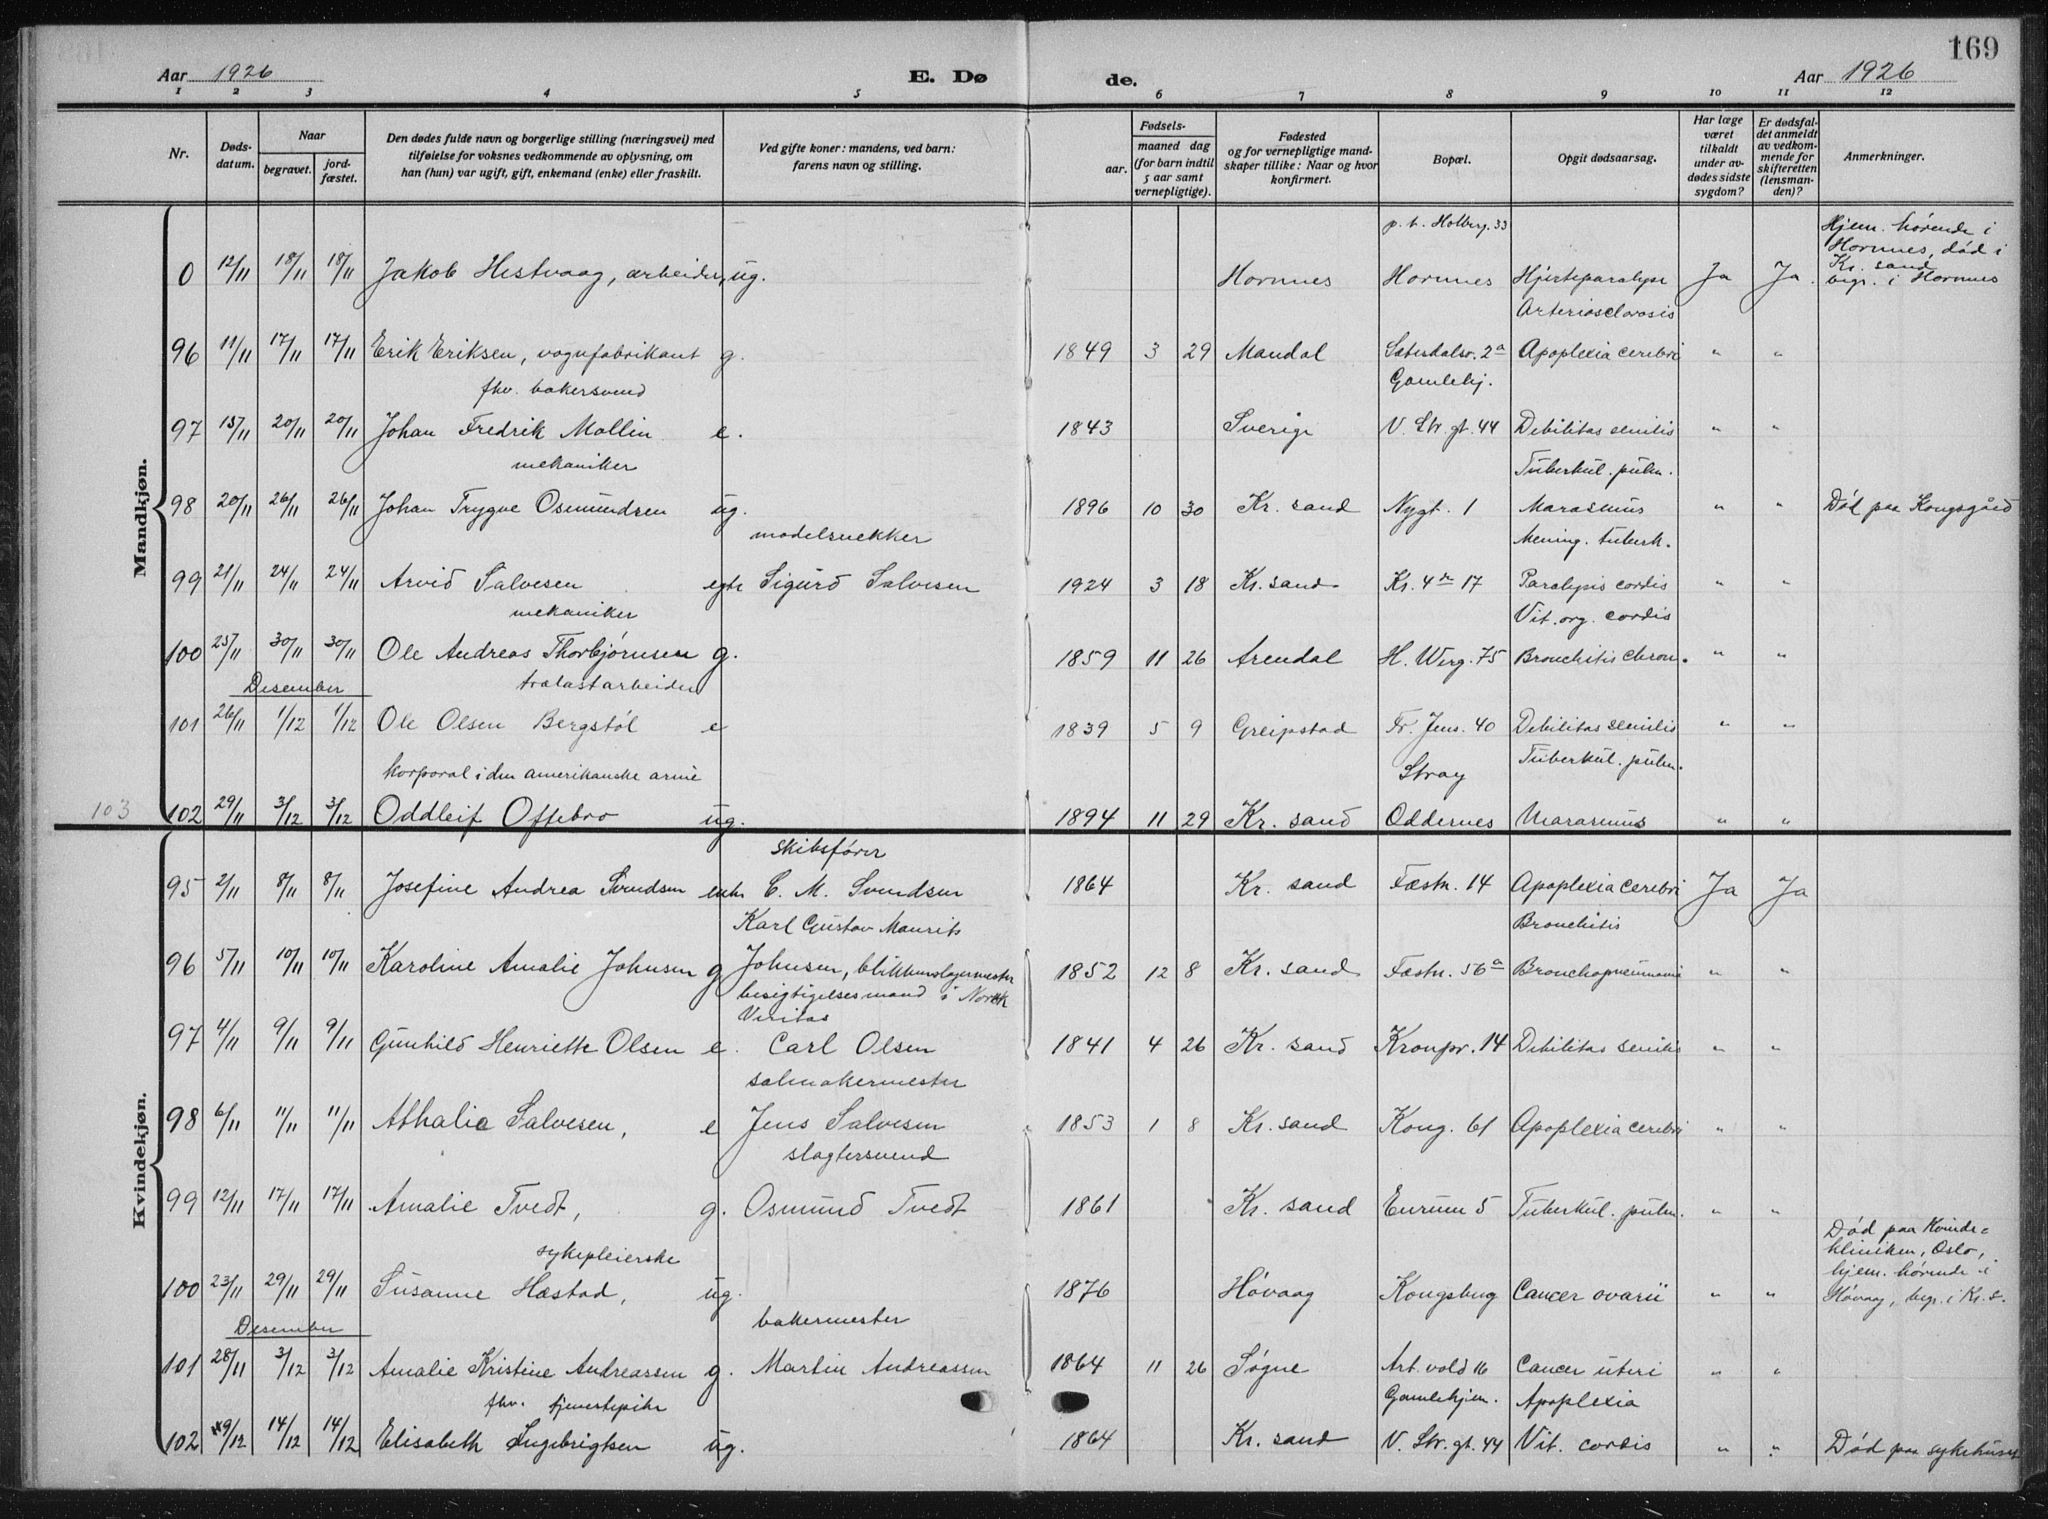 169
Aar 1926 E. Dø de. Aar 1926
1 2 3 4 5 6 7 8 9 10 11 12
Nr. Døds-datum. Naar begravet. jord-fæstet. Den dødes fulde navn og borgerlige stilling (næringsvei) med tilføielse for voksnes vedkommende av oplysning, om han (hun) var ugift, gift, enkemand (enke) eller fraskilt. Ved gifte koner: mandens, ved barn: farens navn og stilling. Fødsels- aar. maaned dag (for barn indtil 5 aar samt vernepligtige). Fødested og for vernepligtige mand-skaper tillike: Naar og hvor konfirmert. Bopæl. Opgit dødsaarsag. Har læge været tilkaldt under av-dødes sidste sygdom? Er dødsfal-det anmeldt av vedkom-mende for skifteretten (lensman-den)? Anmerkninger.
Mandkjøn.
p. t. Holberg. 33 Hjem. hørende i
Hornnes, død i
Kr. sand
0 12/11 18/11 18/11 Jakob Hestvaag, arbeider, ug. Hornnes Hornnes Hjerteparalyse Ja Ja. begr. i Hornnes
Arteriosclorosis
96 11/11 17/11 17/11 Erik Eriksen, vognfabrikant g. 1849 3 29 Mandal Setesdalsv. 2a Apoplexia cerebri " "
fhv. bakersvend Gamlehj.
97 15/11 20/11 20/11 Johan Fredrik Mollin e. 1843 Sverige V. Str. gt. 44 Debilitas senilis " "
mekaniker Tuberkul. pulm.
98 20/11 26/11 26/11 Johan Trygve Osmundsen ug. 1896 10 30 Kr. sand Nygt. 1 Marasmus " " Død paa Kongsgård
modelsnekker Mening. tuberk.
99 21/11 24/11 24/11 Arvid Salvesen egte Sigurd Salvesen 1924 3 18 Kr. sand Kr. 4 17 Paralysis cordis " "
mekaniker Vit. org. cordis
100 25/11 30/11 30/11 Ole Andreas Thorbjørnsen g. 1859 11 26 Arendal H. Werg. 75 Bronchitis chron. " "
Desember trælastarbeider
101 26/11 1/12 1/12 Ole Olsen Bergstøl e 1839 5 9 Greipstad Fr. Jens. 40 Debilitas senilis " "
korporal i den amerikanske armé Stray Tuberkul. pulm.
103 102 29/11 3/12 3/12 Oddleif Oftebro ug. 1894 11 29 Kr. sand Oddernes Marasmus " "
Kvindekjøn.
skibsfører
95 2/11 8/11 8/11 Josefine Andrea Svendsen enke C. M. Svendsen 1864 Kr. sand Fæstn. 14 Apoplexia cerebri Ja Ja
Karl Gustav Maurits Bronchitis
96 5/11 10/11 10/11 Karoline Amalie Johnsen g Johnsen, blikkenslagermester 1852 12 8 Kr. sand Fæstn. 56a Bronchopneumonie " "
besigtigelsesmand i Norsk
Veritas
97 4/11 9/11 9/11 Gunhild Henriette Olsen e. Carl Olsen 1841 4 26 Kr. sand Kronpr. 14 Debilitas senilis " "
salmakermester
98 6/11 11/11 11/11 Athalie Salvesen, e Jens Salvesen 1853 1 8 Kr. sand Kong. 61 Apoplexia cerebri " "
slagtersvend
99 12/11 17/11 17/11 Amalie Tvedt, g. Osmund Tvedt 1861 Kr. sand Enrum 5 Tuberkul. pulm. " "
Død paa Kvinde-
sykepleierske kliniken, Oslo,
hjem. hørende i
100 23/11 29/11 29/11 Susanne Hæstad, ug. 1876 Høvaag Kongsbug Cancer ovarii " " Høvaag, begr. i Kr. s.
Desember bakermester
101 28/11 3/12 3/12 Amalie Kristine Andreassen g. Martin Andreassen 1864 11 26 Søgne Art. vold 16 Cancer uteri " "
fhv. tjenestepike Gamlehjem. Apoplexia
102 9/12 14/12 14/12 Elisabeth Ingebrigtsen ug. 1864 Kr. sand V. Str. gt. 44 Vit. cordis " " Død paa sykehuset